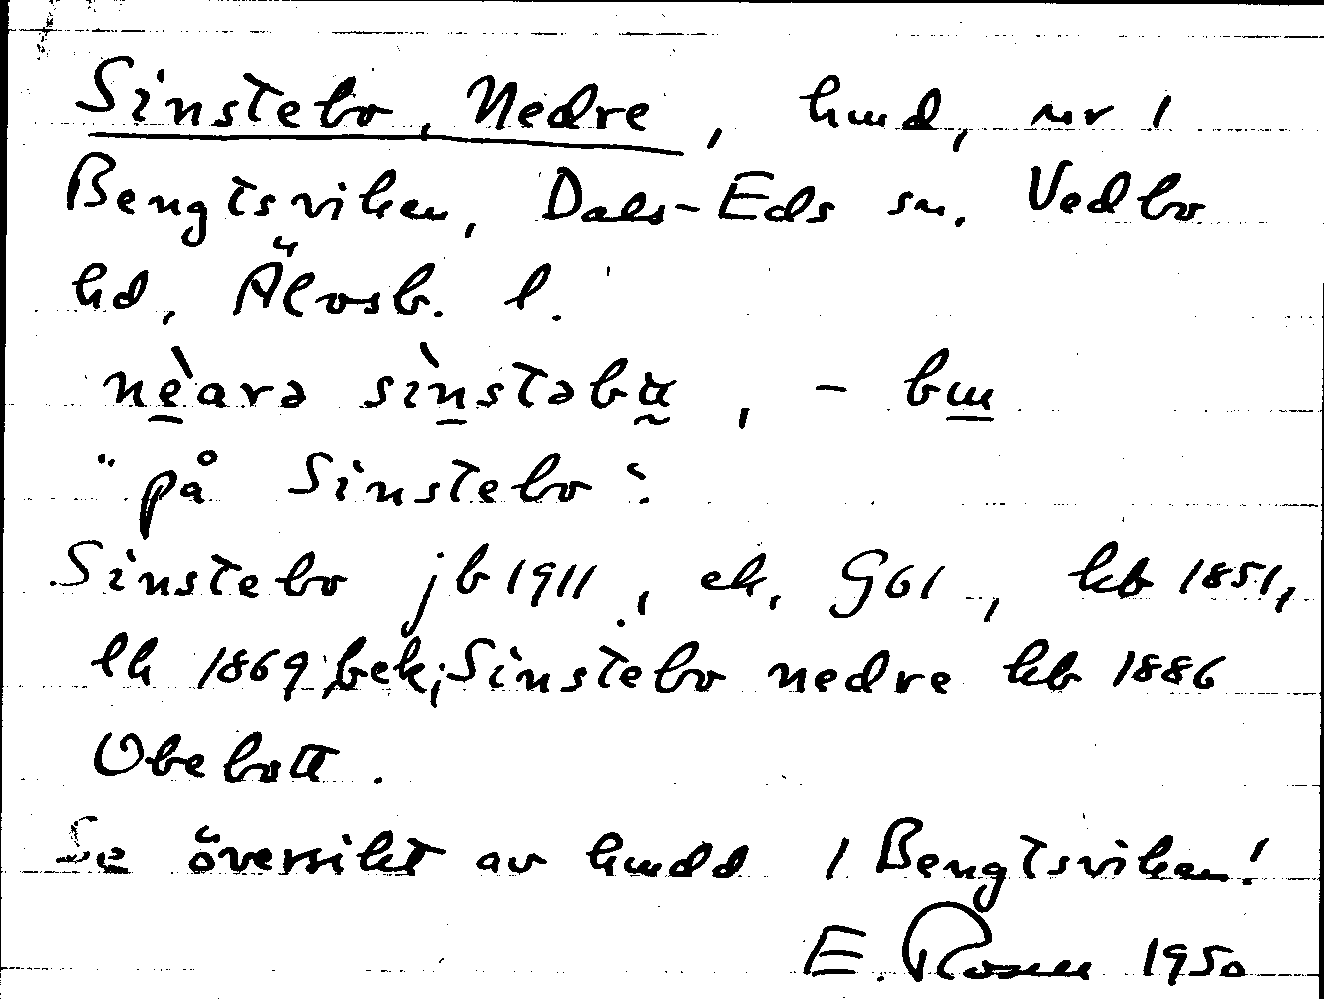 Sinstebo, Nedre, hmd, nr 1
Bengtsviken, Dals-Eds sn. Vedbo
hd, Älvsb. l.
nèarə sìnstəbu̠, - bɯ
"på Sinstebo".
Sinstebo jb 1911, ek, G61, hb 1851,
lh 1869, bek; Sinstebo nedre hb 1886
Obebott.
Se översikt av hmdd 1 Bengtsviken!
E. Rosen 1950